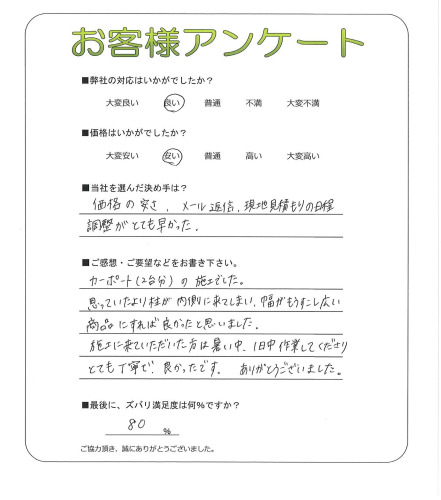 お客様アンケート
■弊社の対応はいかがでしたか？
大変良い 良い 普通 不満 大変不満
■価格はいかがでしたか？
大変安い 安い 普通 高い 大変高い
■当社を選んだ決め手は？
価格の安さ、メール返信、現地見積もりの日程
調整がとても早かった。
■ご感想・ご要望などをお書き下さい。
カーポート(2台分)の施工でした。
思っていたより柱が内側に来てしまい、幅がもうすこし広い
商品にすれば良かったと思いました。
施工に来ていただいた方は暑い中、1日中作業してくださり
とても丁寧で、良かったです。ありがとうございました。
■最後に、ズバリ満足度は何％ですか？
80 %
ご協力頂き、誠にありがとうございました。